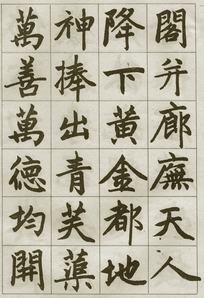 閣并廊廡天人
降下黄金都地
神捧出青芙蕖
萬善萬德均開